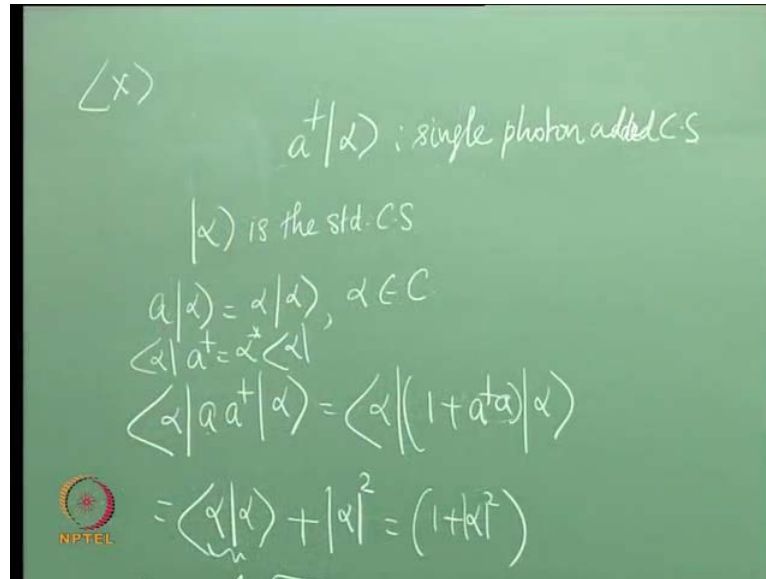 ⟨x⟩
a†|α⟩ : single photon added C.S
|α⟩ is the std. C.S
a|α⟩ = α|α⟩, α ∈ C
⟨α|a† = α*⟨α|
⟨α|aa†|α⟩ = ⟨α|(1+a†a)|α⟩
= ⟨α|α⟩ + |α|² = (1+|α|²)
NPTEL